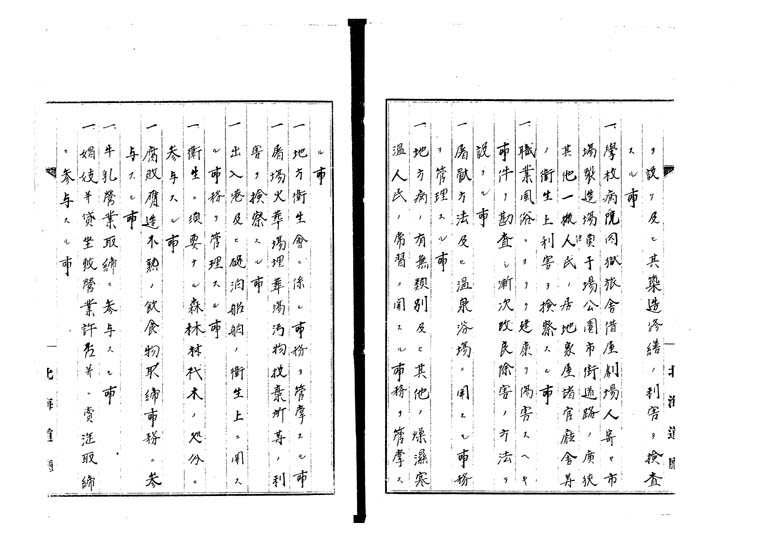 ヲ設ケ及ヒ其築造修繕ノ利害ヲ検査
スル事
一学校病院囚獄旅舎借座劇場人寄セ市
場製造場 場公園市街道路ノ広狭
其他一般人民ノ居地家屋諸官廨舎等
ノ衛生上利害ヲ検察スル事
一職業風俗 健康ヲ傷害スヘキ
事件ヲ勘査シ漸次改良除害ノ方法ヲ
設クル事
一屠獣方法及ヒ温泉浴場ニ関スル事務
ヲ管理スル事
一地方病ノ有無類別及ヒ其他ノ燥湿寒
温人民ノ常習ニ関スル事務ヲ管掌ス
ル事
一地方衛生会ニ係ル事務ヲ管掌スル事
一屠場火葬場埋葬場汚物投棄所等ノ利
害ヲ検察スル事
一出入港及ヒ碇泊船舶ノ衛生上ニ関ス
ル事務ヲ管理スル事
一衛生ニ須要ナル森林林代木ノ処分ニ
参与スル事
一腐敗贋造不熟ノ飲食物取締事務ニ参
与スル事
一牛乳営業取締ニ参与スル事
一娼妓并貸坐敷営業許否并ニ売淫取締
ニ参与スル事
北海道庁
北海道庁